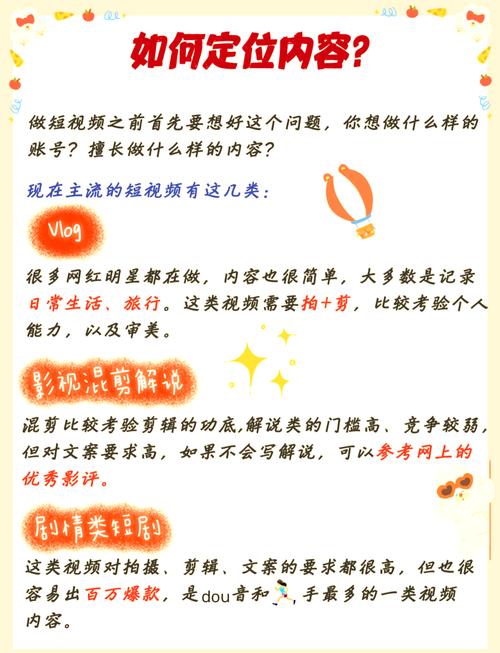 如何定位内容?
做短视频之前首先要想好这个问题，你想做什么样的
账号？擅长做什么样的内容？
现在主流的短视频有这几类：
Vlog
很多网红明星都在做，内容也很简单，大多数是记录
日常生活、旅行。这类视频需要拍+剪，比较考验个人
能力，以及审美。
影视混剪解说
混剪比较考验剪辑的功底,解说类的门槛高、竞争较弱，
但对文案要求高，如果不会写解说，可以参考网上的
优秀影评。
剧情类短剧
这类视频对拍摄、剪辑、文案的要求都很高，但也很
容易出百万爆款，是dou音和🏃手最多的一类视频
内容。